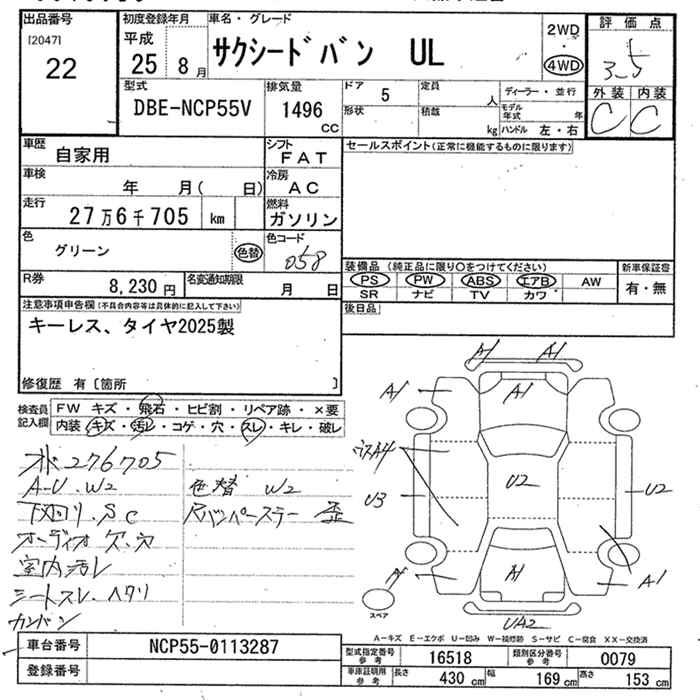 出品番号
[2047]
22
初度登録年月
平成
25 8月
車名・グレード
サクシードバン UL
2WD
・
4WD
評価点
3.5
外装 内装
C C
型式
DBE-NCP55V
排気量
1496
cc
ドア 5
形状
定員
人
積載
kg
ディーラー・並行
モデル年式 年
ハンドル 左・右
車歴
自家用
シフト
FAT
車検
年 月( 日)
冷房
AC
走行
27万6千705 km
燃料
ガソリン
色
グリーン
色替
色コード
058
R券
8,230円
名変通知期限
月 日
セールスポイント(正常に機能するものに限ります)
装備品 (純正品に限り○をつけてください)
PS PW ABS エアB AW
SR ナビ TV カワ
新車保証書
有・無
後日品
注意事項申告欄(不具合内容等は具体的に記入して下さい)
キーレス、タイヤ2025製
修復歴 有〔箇所 〕
検査員
記入欄
FW キズ・飛石・ヒビ割・リペア跡・×要
内装・キズ・汚レ・コゲ・穴・スレ・キレ・破レ
276705
A-U.W2
下回り.SC
オーディオ欠.穴
室内汚レ
シートスレ.ヘタリ
カンバン
色替 W2
Rバンパーステー 歪
A1 A1
A1 A1
A4
U3 U2 U2
A A1 A1
UA2
スペア
A-キズ E-エクボ U-凹み W-補修跡 S-サビ C-腐食 XX-交換済
車台番号
NCP55-0113287
登録番号
型式指定番号
参考
16518
類別区分番号
参考
0079
車庫証明用
参考
長さ 430 cm 幅 169 cm 高さ 153 cm